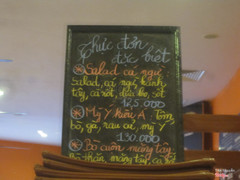 Thực đơn
đặc biệt
Salad cá ngừ
Salad, cá ngừ, hành
tây, cà rốt, dưa leo, sốt
125.000
Mỳ Ý kiểu Á - Tôm
bò, gà, rau củ, mỳ Ý
130.000
Bò cuốn măng tây
măng tây,